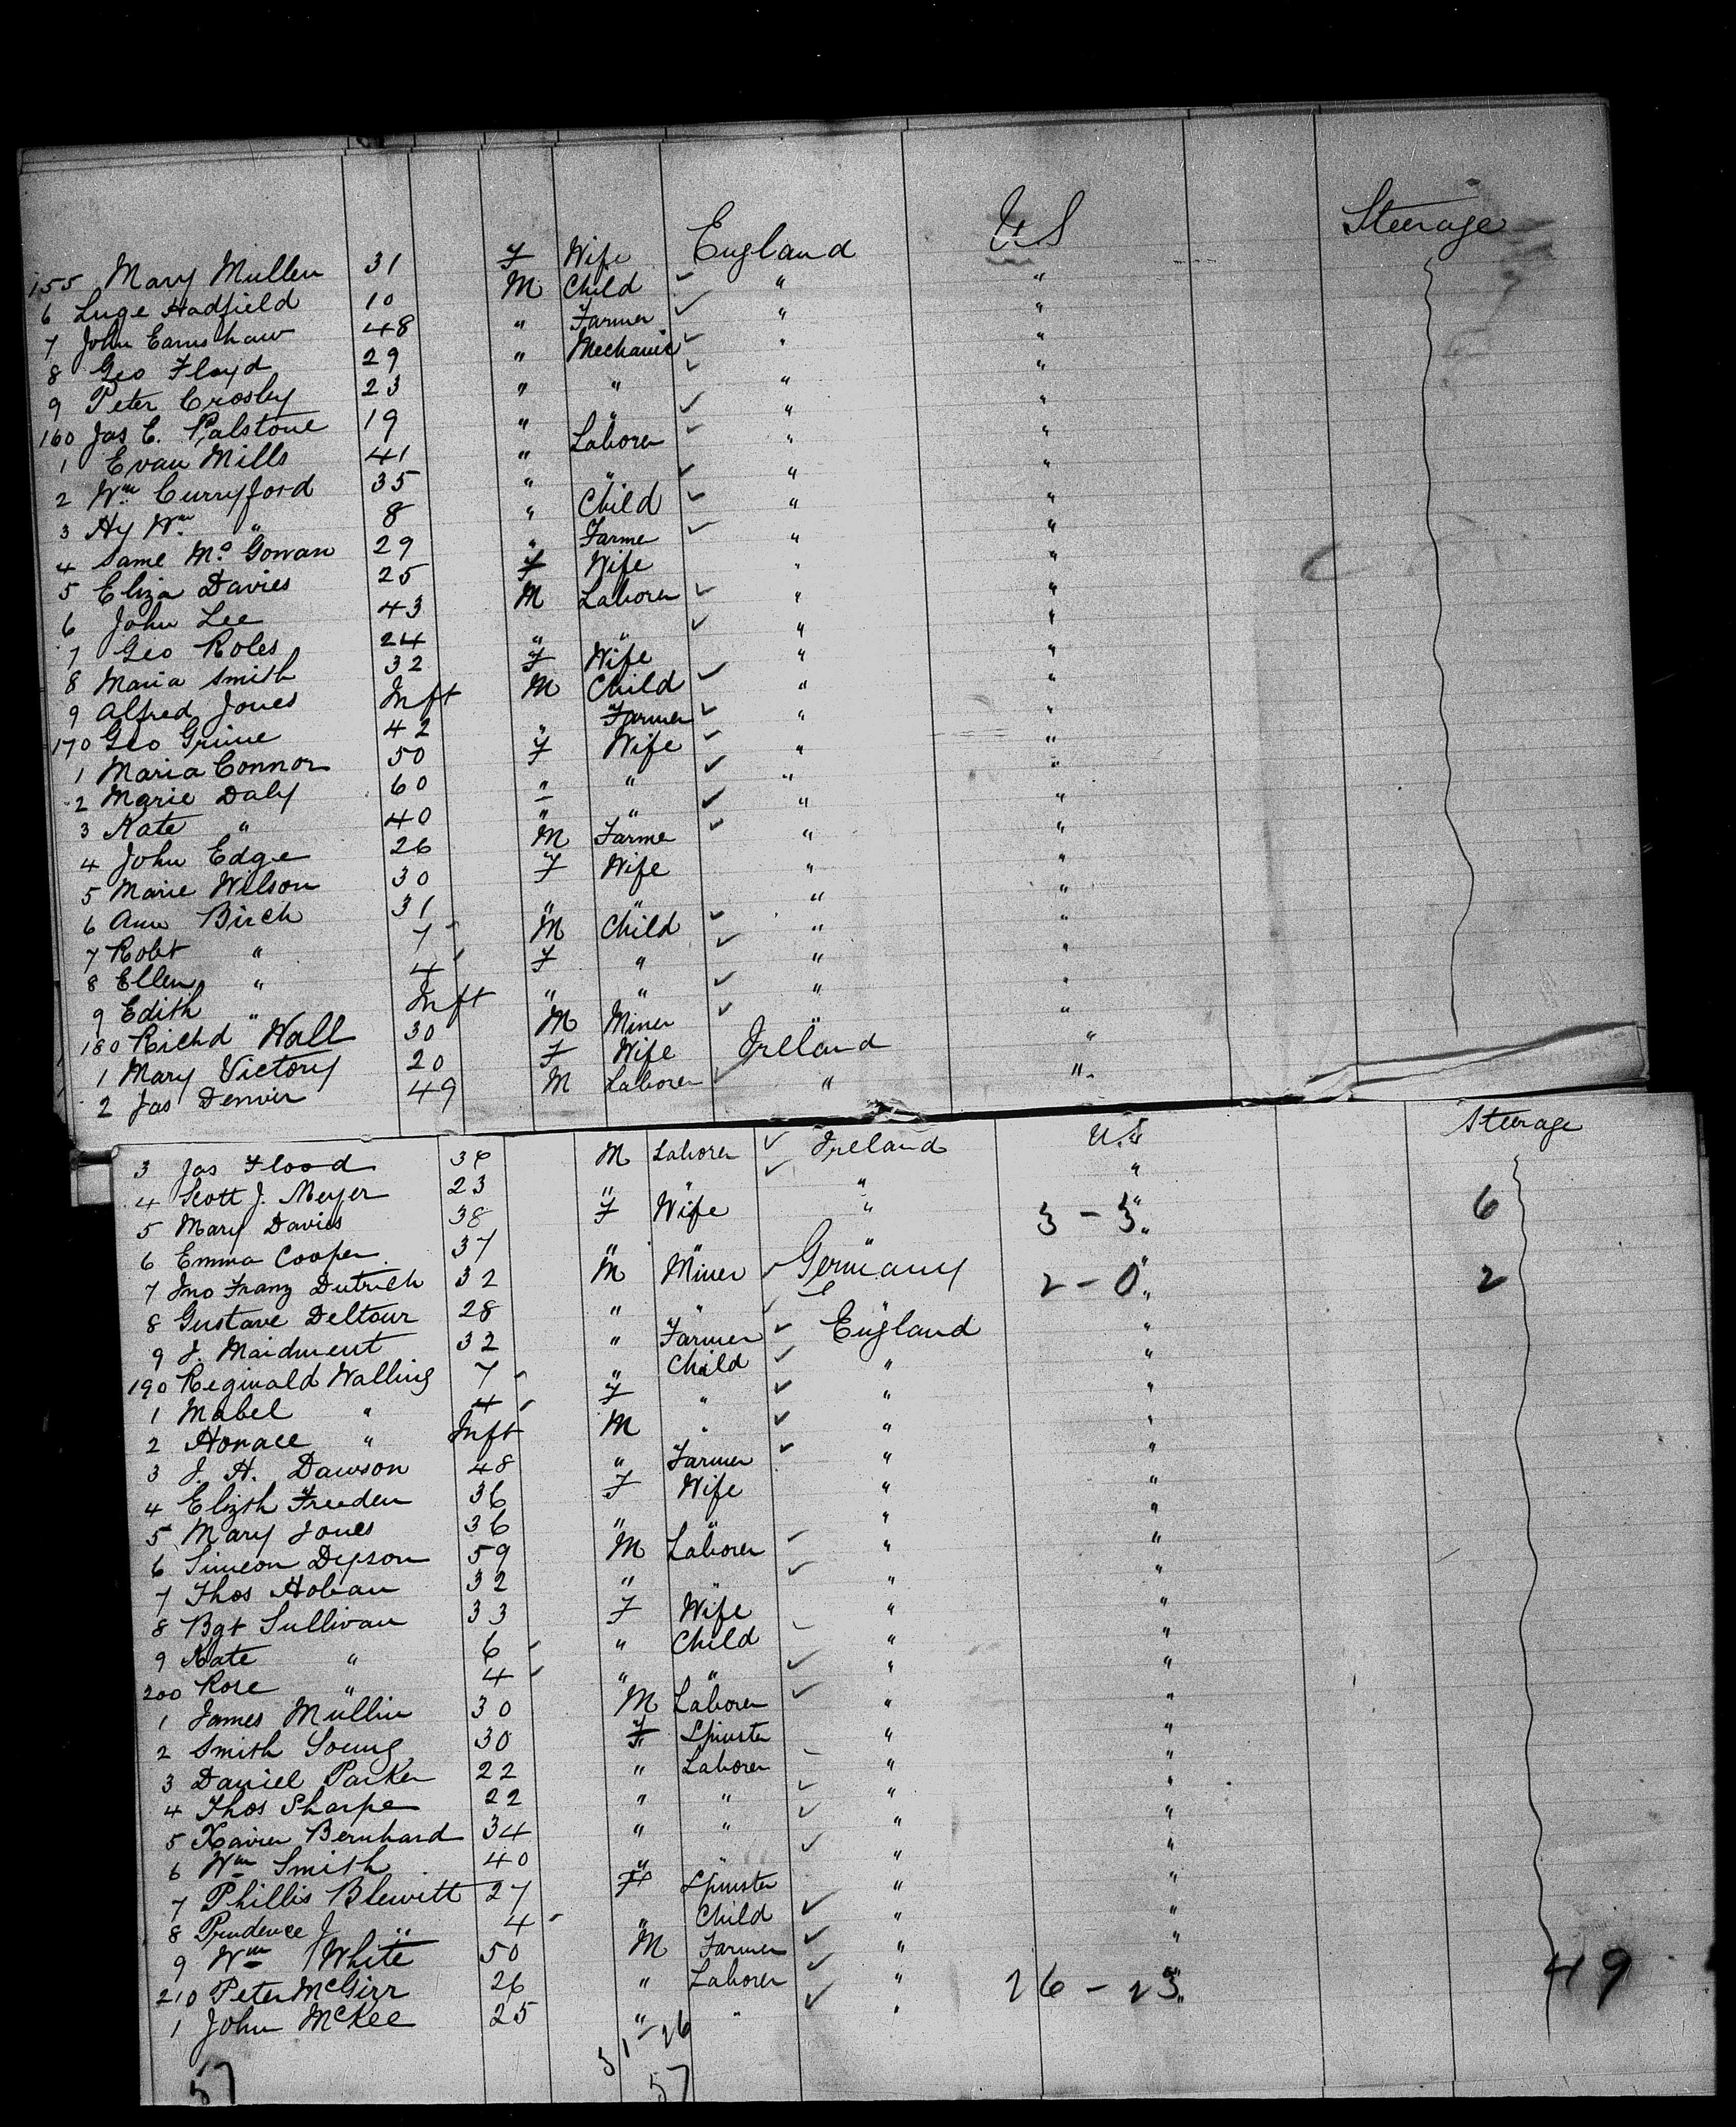 155 Mary Mullen 31 F Wife England US Steerage
6 Luge Hadfield 10 M Child ✓ " "
7 John Earnshaw 48 " Farmer ✓ " "
8 Geo Floyd 29 " Mechanic ✓ " "
9 Peter Crosby 23 " " ✓ " "
160 Jas C. Ralstone 19 " " ✓ " "
1 Evan Mills 41 " Laborer ✓ " "
2 Wm Curryford 35 " " ✓ " "
3 Hy Wm " 8 " Child ✓ " "
4 Saml McGowan 29 " Farmer ✓ " "
5 Eliza Davies 25 F Wife " "
6 John Lee 43 M Laborer ✓ " "
7 Geo Roles 24 " " ✓ " "
8 Maria Smith 32 F Wife " "
9 Alfred Jones Inft M Child ✓ " "
170 Geo Grime 42 " Farmer ✓ " "
1 Maria Connor 50 F Wife ✓ " "
2 Marie Daly 60 " " ✓ " "
3 Kate " 40 " " ✓ " "
4 John Edge 26 M Farme ✓ " "
5 Marie Wilson 30 F Wife " "
6 Ann Birch 31 " " " "
7 Robt " 7 M Child ✓ " "
8 Ellen " 4 F " ✓ " "
9 Edith " Inft " " ✓ " "
180 Richd Wall 30 M Miner ✓ " "
1 Mary Victory 20 F Wife Ireland "
2 Jas Denvir 49 M Laborer ✓ " "
3 Jas Flood M Laborer ✓ Ireland U.S. Steerage
4 Scott J. Meyer 23 " " ✓ " "
5 Mary Davies 38 F Wife " " 3 - 3 6
6 Emma Cooper 37 " " " "
7 Jno Franz Dutrich 32 M Miner ✓ Germany " 2 - 0 2
8 Gustave Deltour 28 " " ✓ " "
9 J. Maidment 32 " Farmer ✓ England "
190 Reginald Walling 7 " Child ✓ " "
1 Mabel " 4 F " ✓ " "
2 Horace " Inft M " ✓ " "
3 J. H. Dawson 48 " Farmer ✓ " "
4 Elizth Freeden 36 F Wife " "
5 Mary Jones 36 " " " "
6 Simeon Dyson 59 M Laborer ✓ " "
7 Thos Hoban 32 " " ✓ " "
8 Bgt Sullivan 33 F Wife " "
9 Kate " 6 " Child ✓ " "
200 Rose " 4 " " ✓ " "
1 James Mullin 30 M Laborer ✓ " "
2 Smith Young 30 F Spinster " "
3 Daniel Parker 22 " Laborer ✓ " "
4 Thos Sharpe 22 " " ✓ " "
5 Xavier Bernhard 34 " " ✓ " "
6 Wm Smith 40 " " ✓ " "
7 Phillis Blewitt 27 F Spinster " "
8 Prudence J " 4 " Child ✓ " "
9 Wm White 50 M Farmer ✓ " "
210 Peter McGirr 26 " Laborer ✓ " 26 - 23 49
1 John McKee 25 " " ✓ " "
31-26
57 57